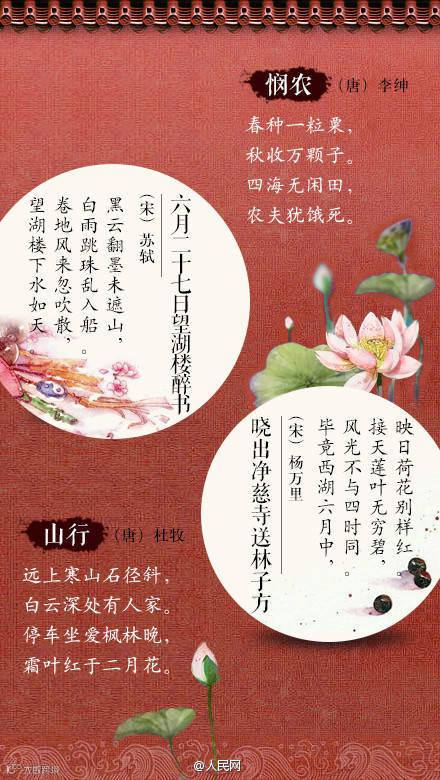 悯农 (唐) 李绅
春种一粒粟，
秋收万颗子。
四海无闲田，
农夫犹饿死。
六月二十七日望湖楼醉书
(宋) 苏轼
黑云翻墨未遮山，
白雨跳珠乱入船。
卷地风来忽吹散，
望湖楼下水如天。
晓出净慈寺送林子方
(宋) 杨万里
毕竟西湖六月中，
风光不与四时同。
接天莲叶无穷碧，
映日荷花别样红。
山行 (唐) 杜牧
远上寒山石径斜，
白云深处有人家。
停车坐爱枫林晚，
霜叶红于二月花。
@人民网